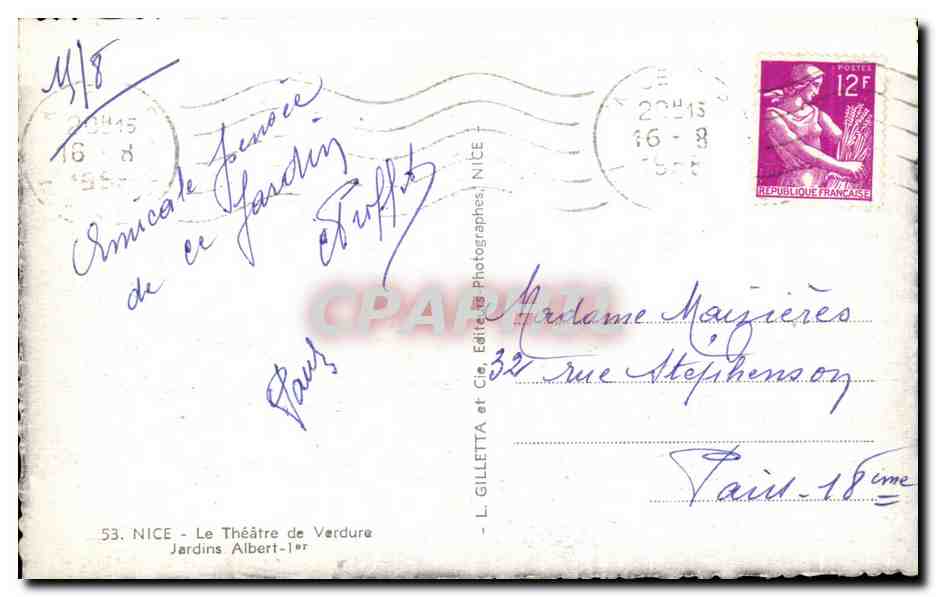 15/8
20H15
16 - 8
Amicale pensée
de ce Jardin
Paul
53. NICE - Le Théâtre de Verdure
Jardins Albert-1er
- L. GILLETTA et Cie, Editeurs Photographes, NICE -
CPAPHIL
20H15
16 - 8
POSTES
12F
REPUBLIQUE FRANCAISE
Madame Maizières
32 rue Stephenson
Paris - 18ème